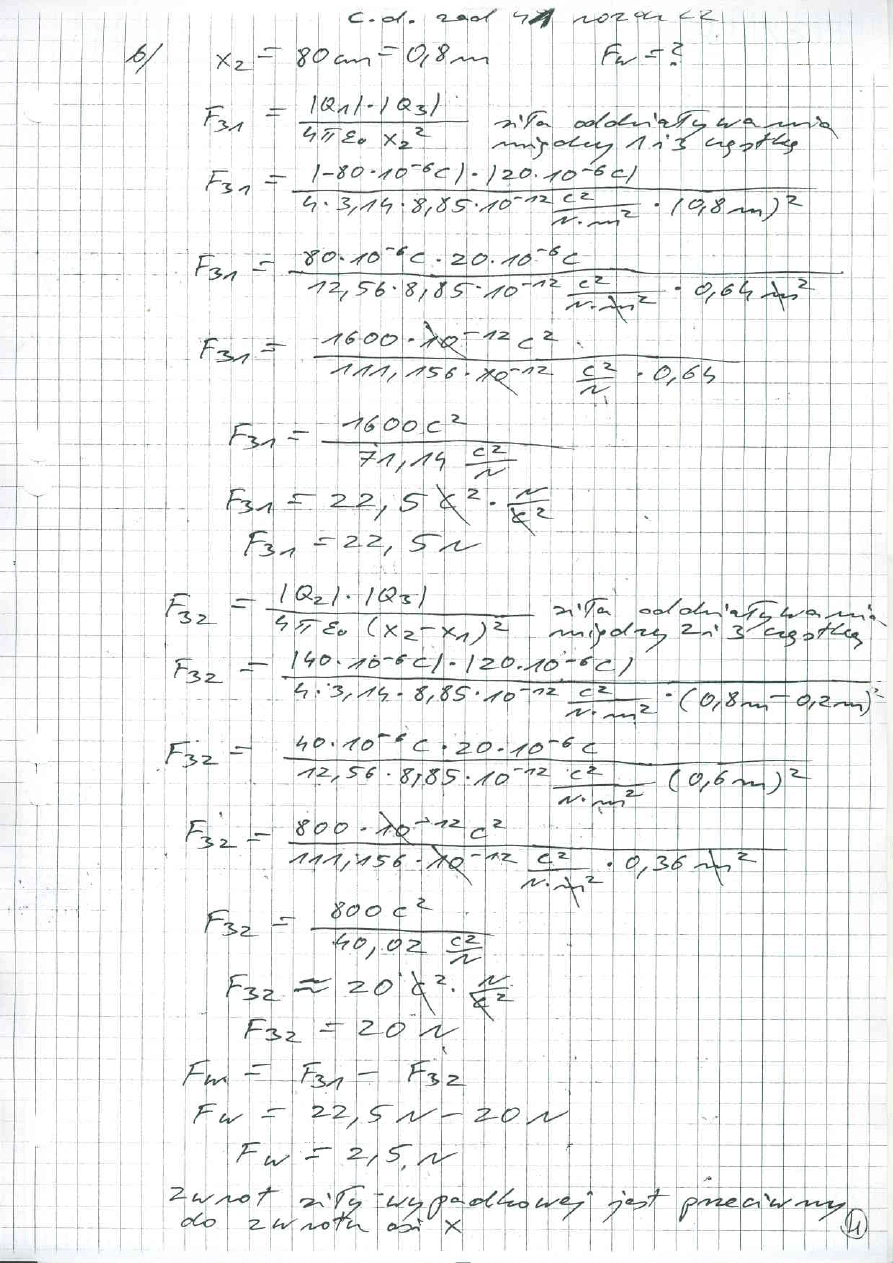 c.d. zad 41 rozdz 22
b/ x₂ = 80 cm = 0,8 m Fw = ?
F₃₁ = |Q₁|·|Q₃| / 4πε₀ x₂² siła oddziaływania
między 1 i 3 cząstką
F₃₁ = |-80·10⁻⁶C|·|20·10⁻⁶C| / 4·3,14·8,85·10⁻¹² C²/N·m² · (0,8 m)²
F₃₁ = 80·10⁻⁶C·20·10⁻⁶C / 12,56·8,85·10⁻¹² C²/N·m² · 0,64 m²
F₃₁ = 1600·10⁻¹²C² / 111,156·10⁻¹² C²/N · 0,64
F₃₁ = 1600 C² / 71,14 C²/N
F₃₁ = 22,5 C² · N/C²
F₃₁ = 22,5 N
F₃₂ = |Q₂|·|Q₃| / 4πε₀ (x₂-x₁)² siła oddziaływania
między 2 i 3 cząstką
F₃₂ = |40·10⁻⁶C|·|20·10⁻⁶C| / 4·3,14·8,85·10⁻¹² C²/N·m² · (0,8m - 0,2m)²
F₃₂ = 40·10⁻⁶C·20·10⁻⁶C / 12,56·8,85·10⁻¹² C²/N·m² (0,6 m)²
F₃₂ = 800·10⁻¹²C² / 111,156·10⁻¹² C²/N·m² · 0,36 m²
F₃₂ = 800 C² / 40,02 C²/N
F₃₂ ≈ 20 C² · N/C²
F₃₂ = 20 N
Fw = F₃₁ - F₃₂
Fw = 22,5 N - 20 N
Fw = 2,5 N
zwrot siły wypadkowej jest przeciwny
do zwrotu osi x
4